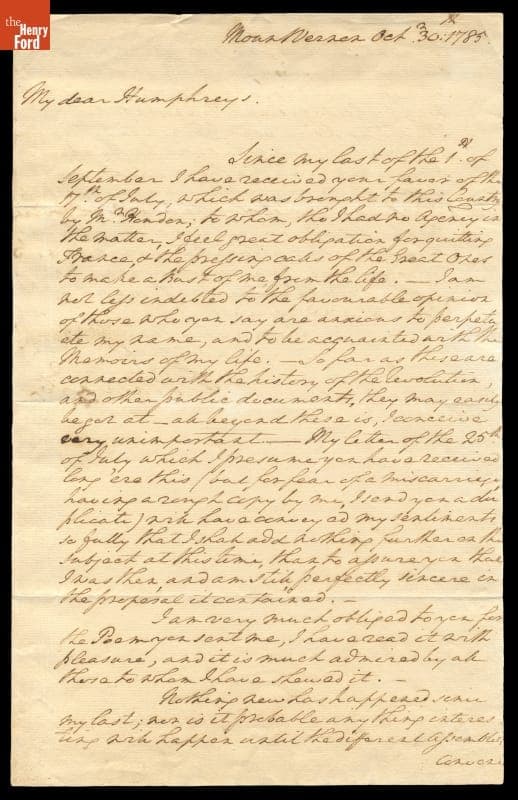 the
Henry
Ford
Mount Vernon Octr. 30th. 1785.
My dear Humphreys.
Since my last of the 1st. of
September I have received your favor of the
17th. of July, which was brought to this Country
by Mr. Houdon; to whom, tho' I had no Agency in
the matter, I feel great obligation for quitting
France, & the pressing calls of the Great Ones
to make a Bust of me from the life. — I am
not less indebted to the favourable opinion
of those who you say are anxious to perpetu
ate my name, and to be acquainted with the
Memoirs of my life. — So far as these are
connected with the history of the revolution,
and other public documents, they may easily
be got at — all beyond these is, I conceive
very unimportant. — My letter of the 25th.
of July which I presume you have received
long 'ere this (but for fear of a miscarriage
having a rough copy by me, I send you a du
plicate) will have conveyed my sentiments
so fully that I shall add nothing further on the
subject at this time, than to assure you that
I was then and am still perfectly sincere in
the proposal it contained. —
I am very much obliged to you for
the Poem you sent me, I have read it with
pleasure, and it is much admired by all
those to whom I have shewed it. —
Nothing new has happened since
my last; nor is it probable any thing interes
ting will happen until the different Assemblies
convene